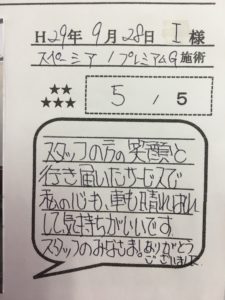 H29年9月28日 I様
スペーシア/プレミアムG施術
★★
★★★
5/5
スタッフの方の笑顔と
行き届いたサービスで
私の心も、車も晴れ晴れ
して気持ちがいいです
スタッフのみなさま!ありがとう
ございました